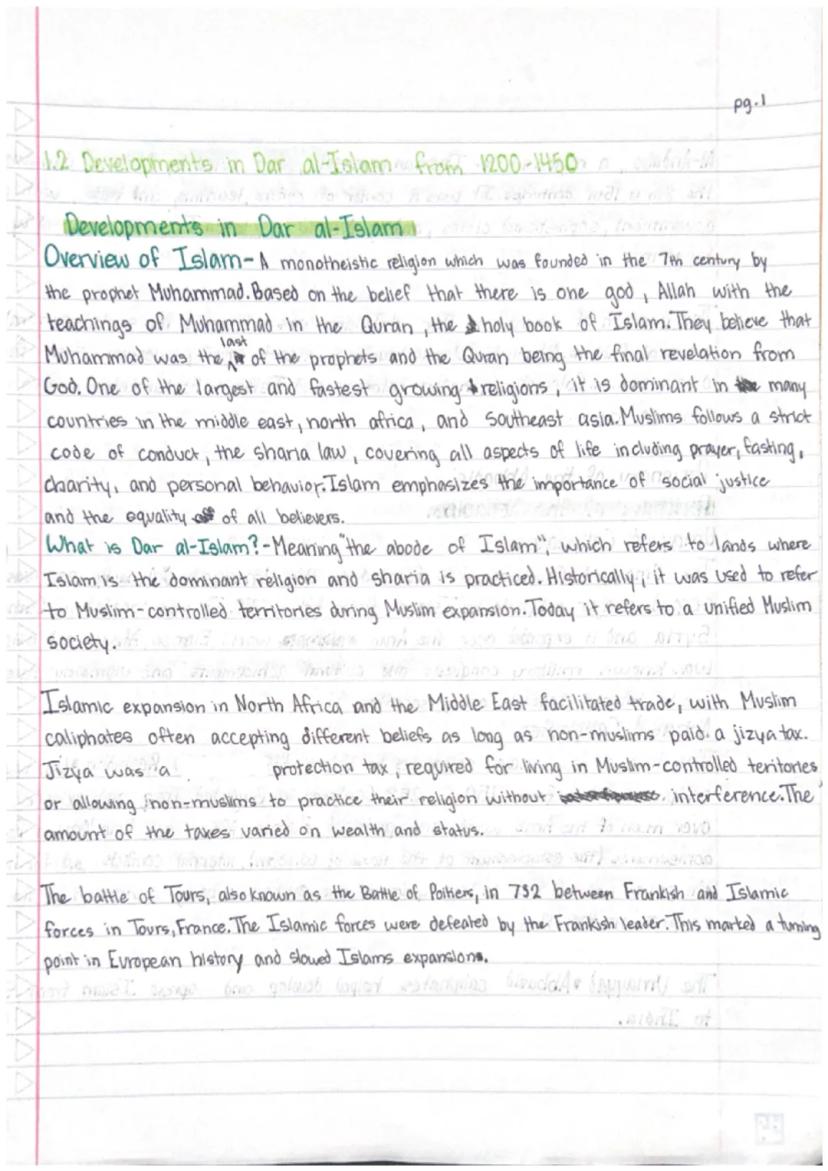 pg.1
1.2 Developments in Dar al-Islam from 1200-1450
Developments in Dar al-Islam
Overview of Islam- A monotheistic religion which was founded in the 7th century by
the prophet Muhammad. Based on the belief that there is one god, Allah with the
teachings of Muhammad in the Quran, the holy book of Islam. They believe that
Muhammad was the last of the prophets and the Quran being the final revelation from
God. One of the largest and fastest growing religions, it is dominant in many
countries in the middle east, north africa, and southeast asia. Muslims follows a strict
code of conduct, the sharia law, covering all aspects of life including prayer, fasting,
charity, and personal behavior. Islam emphasizes the importance of social justice
and the equality of all believers.
What is Dar al-Islam?- Meaning "the abode of Islam", which refers to lands where
Islam is the dominant religion and sharia is practiced. Historically, it was used to refer
to Muslim-controlled territories during Muslim expansion. Today it refers to a unified Muslim
society.
Islamic expansion in North Africa and the Middle East facilitated trade, with Muslim
caliphates often accepting different beliefs as long as non-muslims paid a jizya tax.
Jizya was a protection tax, required for living in Muslim-controlled teritories
or allowing non-muslims to practice their religion without interference. The
amount of the taxes varied on wealth and status.
The battle of Tours, also known as the Battle of Poitiers, in 732 between Frankish and Islamic
forces in Tours, France. The Islamic forces were defeated by the Frankish leader. This marked a turning
point in European history and slowed Islams expansions.